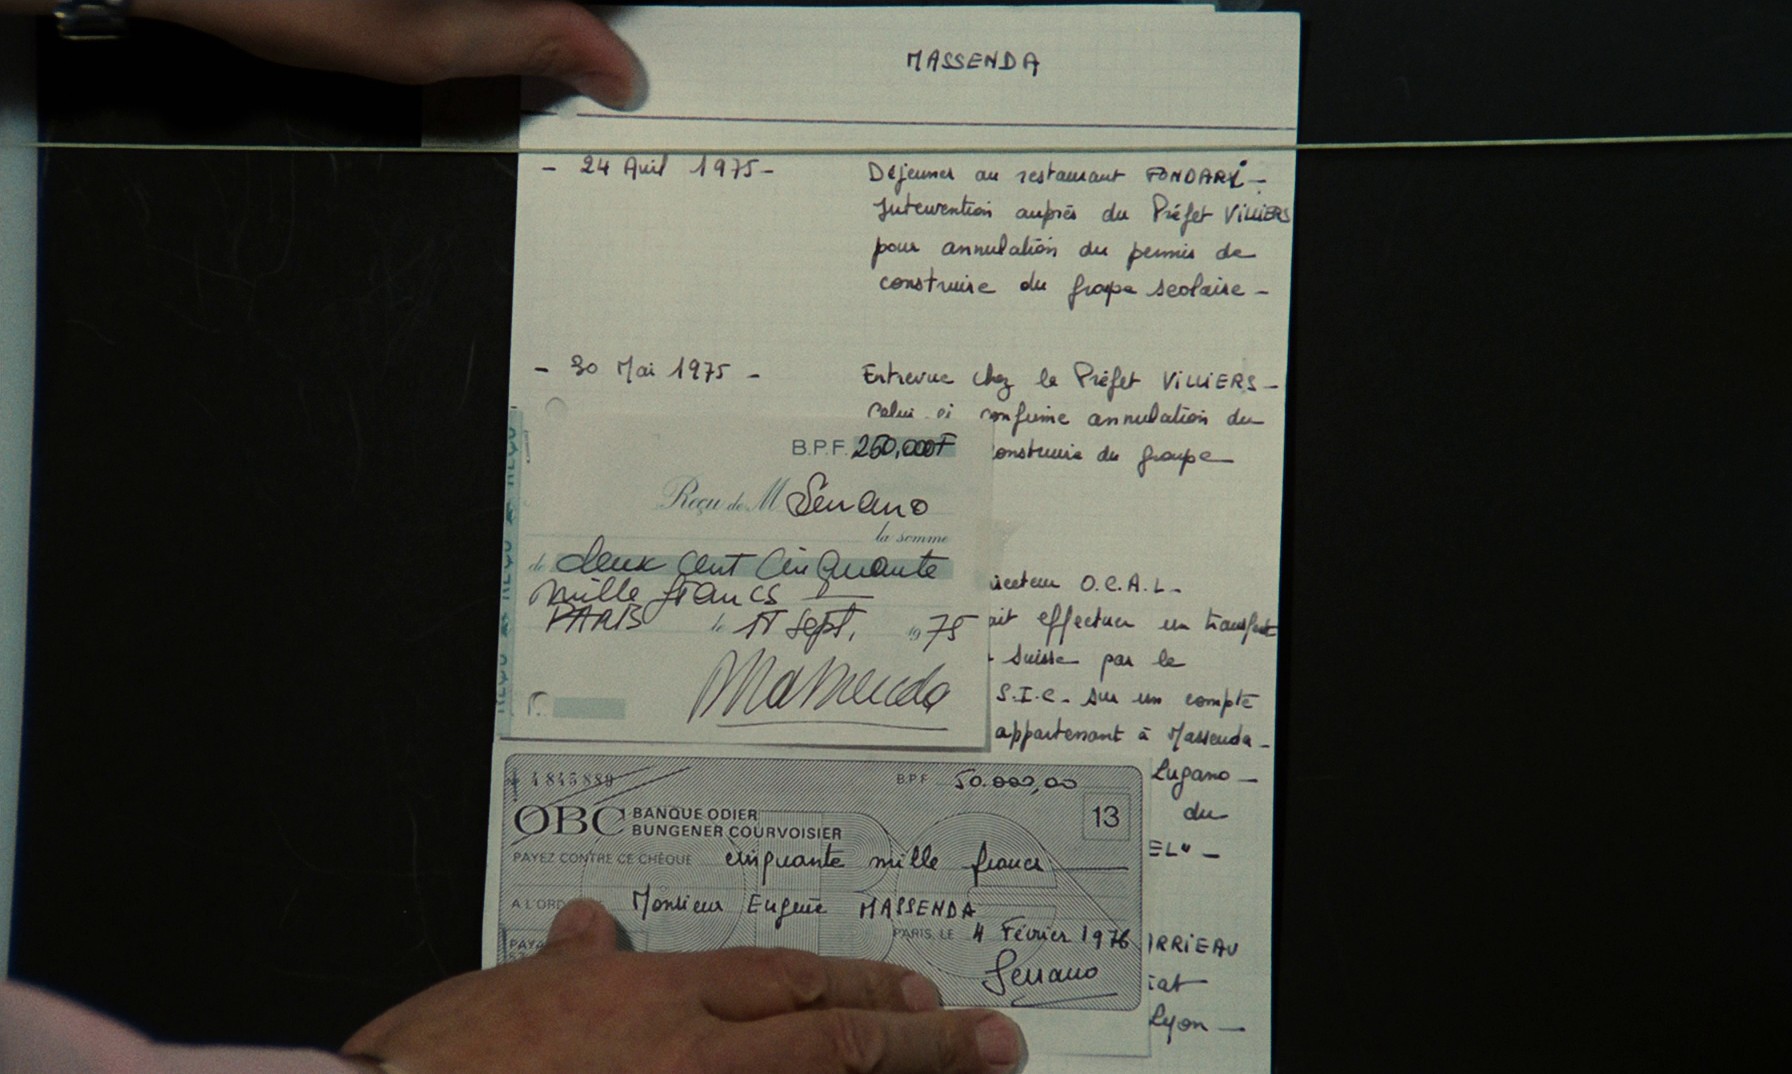 MASSENDA
- 24 Avril 1975 -
Déjeuner au restaurant FONDARI -
Intervention auprès du Préfet VILLIERS
pour annulation du permis de
construire du groupe scolaire -
- 30 Mai 1975 -
Entrevue chez le Préfet VILLIERS -
Celui-ci confirme annulation du
onstruire du groupe
B.P.F. 250,000F
Reçu de M Serrano
la somme
de deux cent cinquante
mille francs
PARIS le 11 Sept. 1975
Massenda
REÇU REÇU REÇU
recteur O.C.A.L. -
ait effectuer un transfert
Suisse par le
S.I.C. sur un compte
appartenant à Massenda -
Lugano -
du
EL" -
RRIEAU
iat
Lyon -
4845889
B.P.F. 50.000,00
OBC BANQUE ODIER
BUNGENER COURVOISIER
13
PAYEZ CONTRE CE CHÈQUE cinquante mille francs
A L'ORD Monsieur Eugène MASSENDA
PARIS, LE 4 Février 1976
PAYA
Serrano